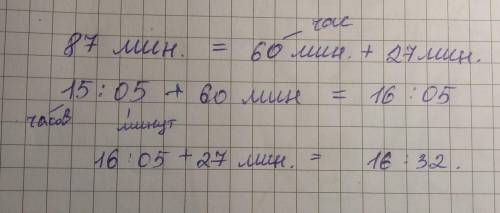 час
87 мин. = 60 мин. + 27 мин.
15 : 05 + 60 мин = 16 : 05
часов минут
16 : 05 + 27 мин. = 16 : 32.